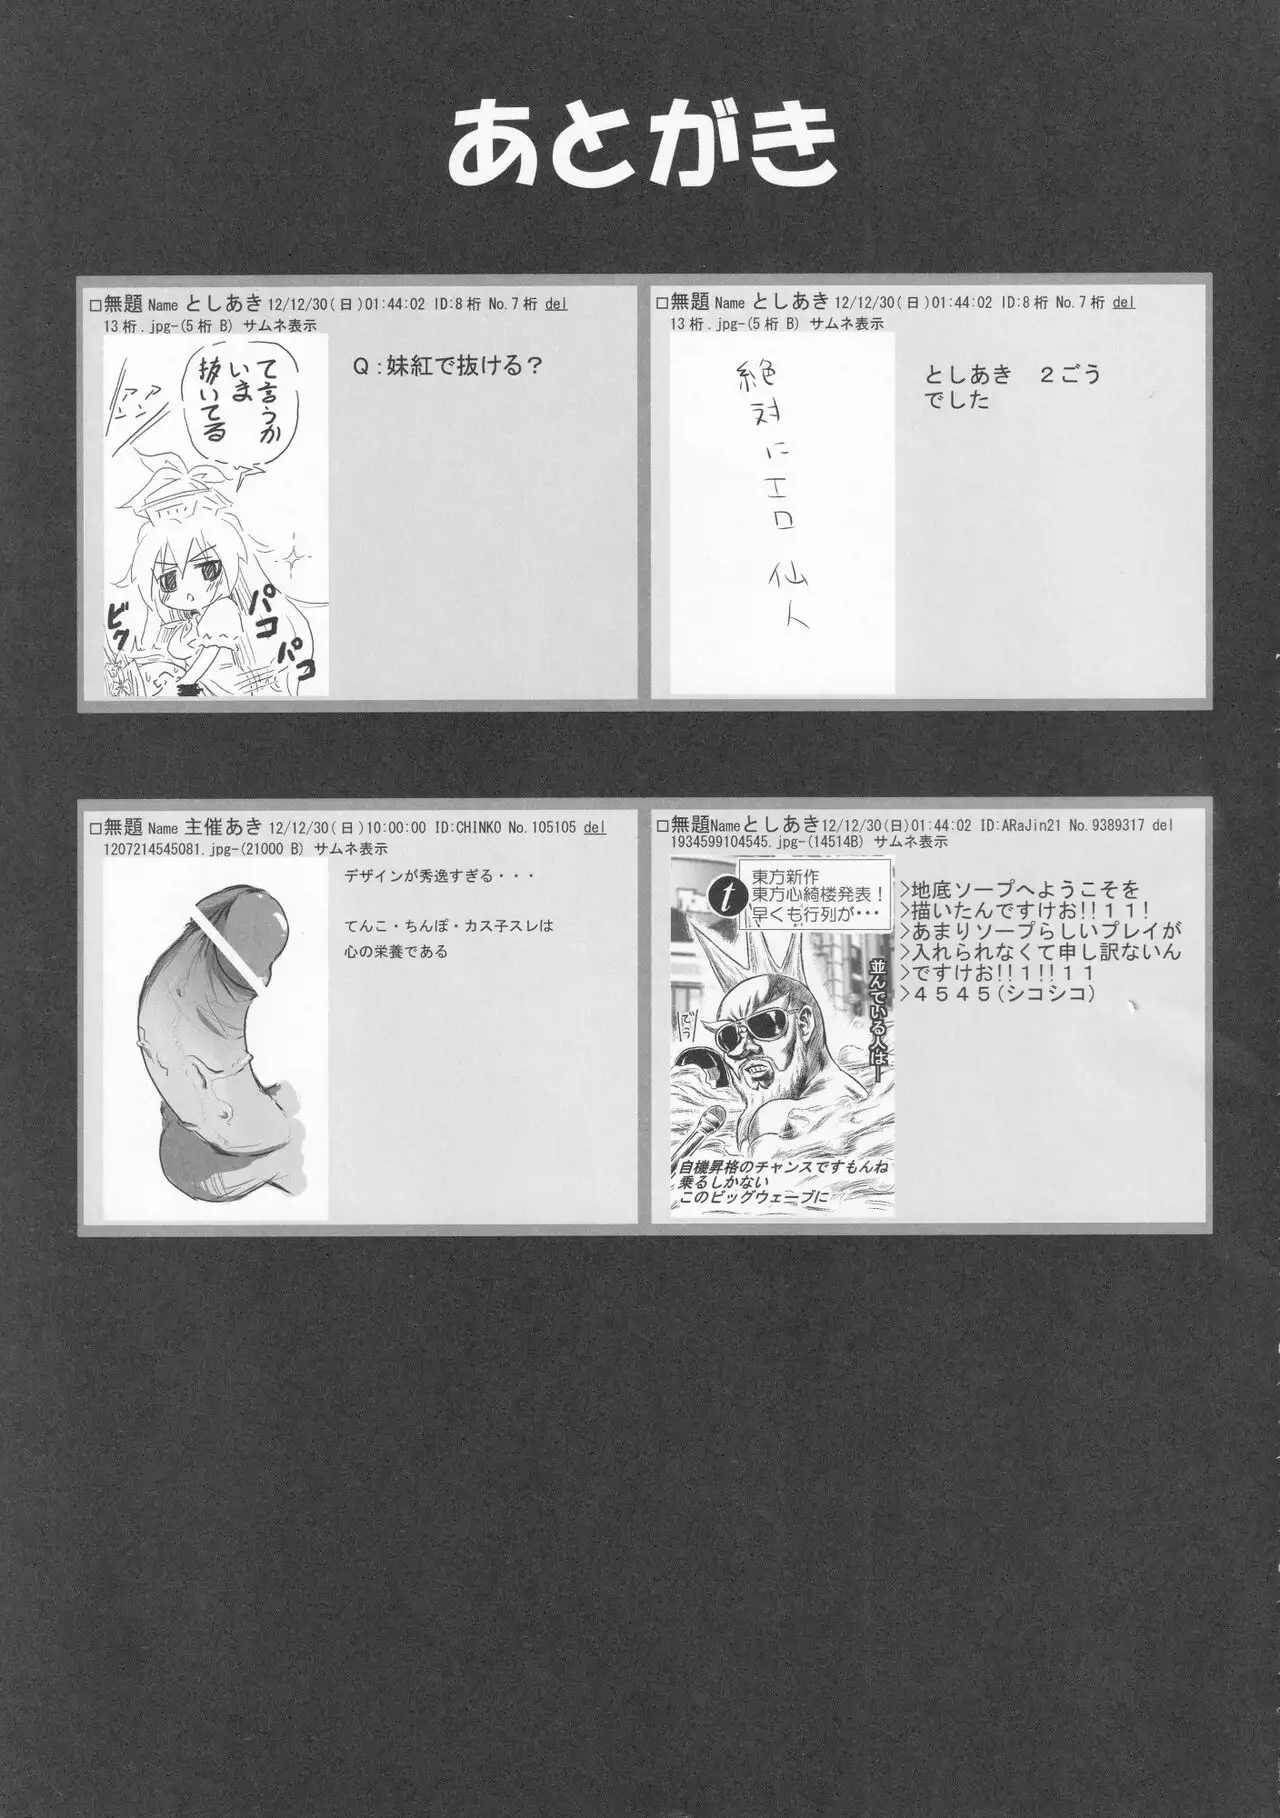 あとがき
□無題 Name としあき 12/12/30(日)01:44:02 ID:8桁 No.7桁 del
13桁.jpg-(5桁 B) サムネ表示
て言うか
いま
抜いてる
Q:妹紅で抜ける？
ビク
パコ
パコ
□無題 Name としあき 12/12/30(日)01:44:02 ID:8桁 No.7桁 del
13桁.jpg-(5桁 B) サムネ表示
絶対にエロ
仙人
としあき　２ごう
でした
□無題 Name 主催あき 12/12/30(日)10:00:00 ID:CHINKO No.105105 del
1207214545081.jpg-(21000 B) サムネ表示
デザインが秀逸すぎる・・・
てんこ・ちんぽ・カス子スレは
心の栄養である
□無題Nameとしあき12/12/30(日)01:44:02 ID:ARaJin21 No.9389317 del
1934599104545.jpg-(14514B) サムネ表示
t
東方新作
東方心綺楼発表！
早くも行列が・・・
並んでいる人はー
自機昇格のチャンスですもんね
乗るしかない
このビッグウェーブに
>地底ソープへようこそを
>描いたんですけお!!１１!
>あまりソープらしいプレイが
>入れられなくて申し訳ないん
>ですけお!!１!!１１
>４５４５(シコシコ)